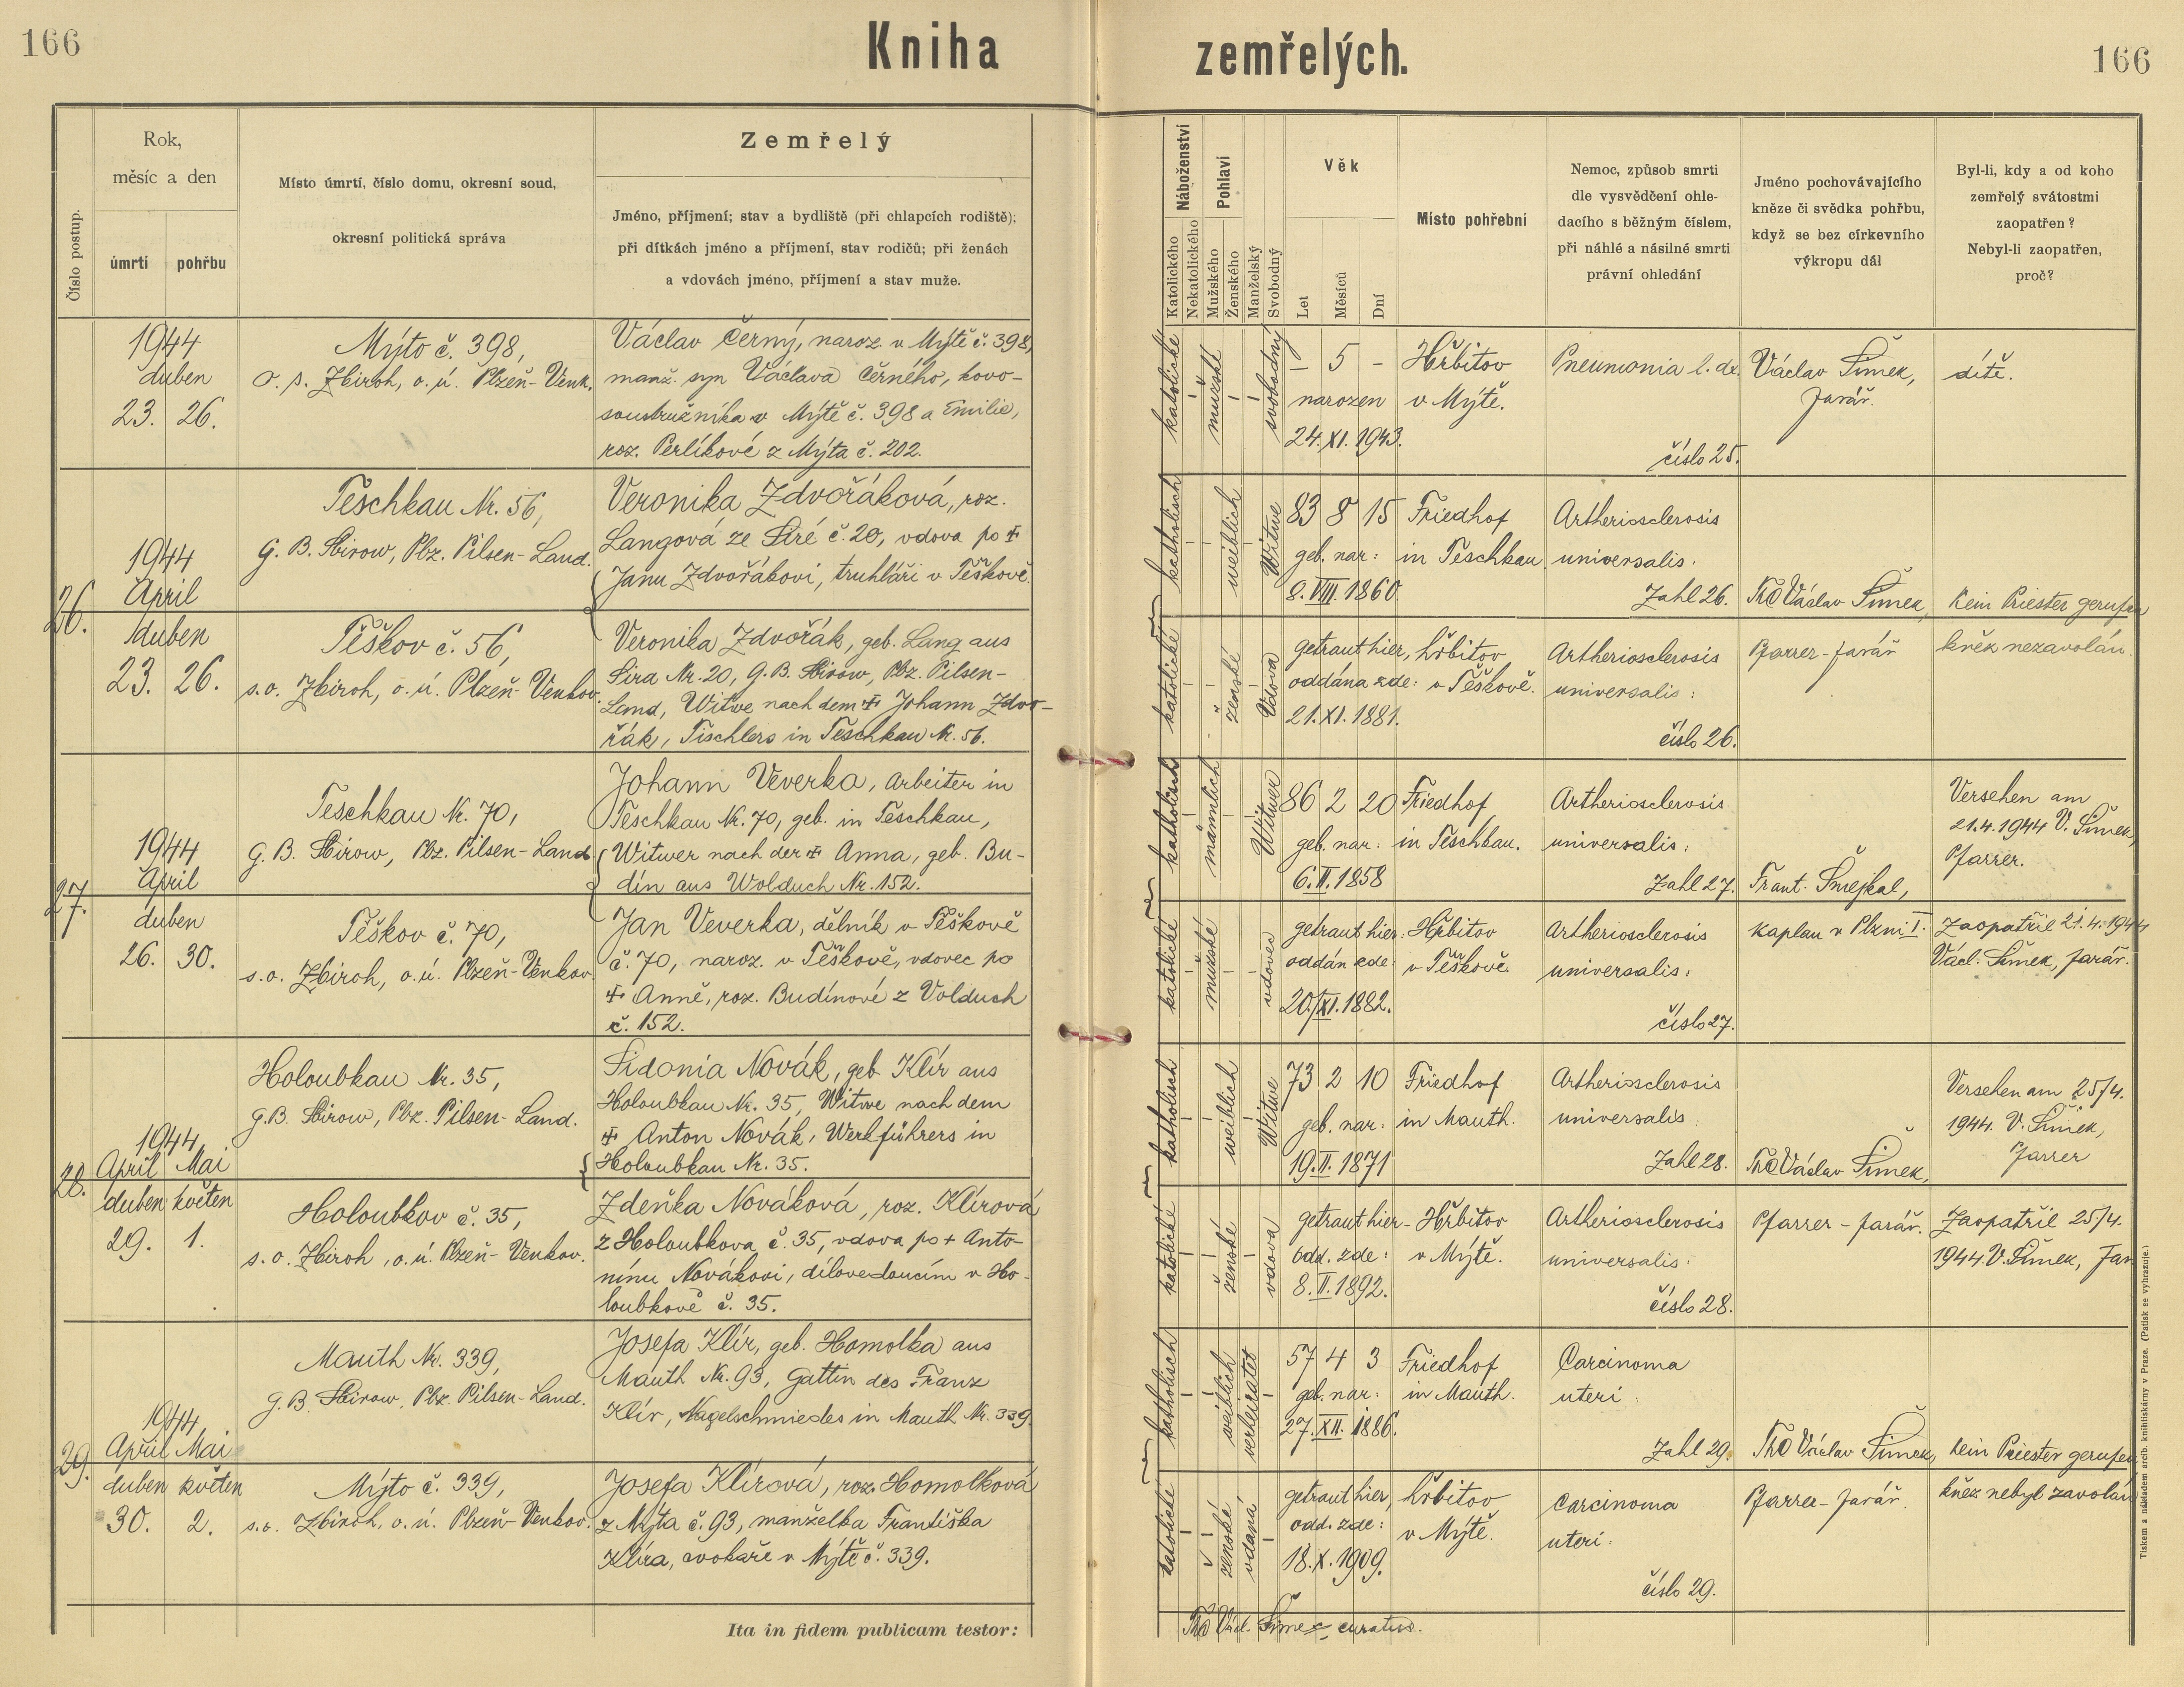 166
Kniha zemřelých.
166
Číslo postup.
Rok,
měsíc a den
úmrtí
pohřbu
Místo úmrtí, číslo domu, okresní soud,
okresní politická správa
Zemřelý
Jméno, příjmení; stav a bydliště (při chlapcích rodiště);
při dítkách jméno a příjmení, stav rodičů; při ženách
a vdovách jméno, příjmení a stav muže.
Náboženství
Katolického
Nekatolického
Pohlaví
Mužského
Ženského
Manželský
Svobodný
Věk
Let
Měsíců
Dní
Místo pohřební
Nemoc, způsob smrti
dle vysvědčení ohle-
dacího s běžným číslem,
při náhlé a násilné smrti
právní ohledání
Jméno pochovávajícího
kněze či svědka pohřbu,
když se bez církevního
výkropu dál
Byl-li, kdy a od koho
zemřelý svátostmi
zaopatřen?
Nebyl-li zaopatřen,
proč?
1944
duben
23. 26.
Mýto č. 398,
o. s. Zbiroh, o. ú. Plzeň-Venk.
Václav Černý, naroz. v Mýtě č. 398,
manž. syn Václava Černého, kovo-
soustružníka v Mýtě č. 398 a Emilie,
roz. Perlíkové z Mýta č. 202.
katolické
mužské
svobodný
– 5 –
narozen
24. XI. 1943.
Hřbitov
v Mýtě.
Pneumonia l. dx.
číslo 25.
Václav Šimek,
farář.
dítě.
26.
1944
April
duben
23. 26.
Teschkau Nr. 56,
G. B. Sbirow, Pbz. Pilsen-Land.
Veronika Zdvořáková, roz.
Langová ze Siré č. 20, vdova po ✝
Janu Zdvořákovi, truhláři v Těškově.
katholisch
weiblich
Witwe
83 8 15
geb. nar:
8. VIII. 1860.
Friedhof
in Teschkau.
Artheriosclerosis
universalis.
Zahl 26.
ThC Václav Šimek,
Kein Priester gerufen
Těškov č. 56,
s.o. Zbiroh, o. ú. Plzeň-Venkov.
Veronika Zdvořák, geb. Lang aus
Sira Nr. 20, G. B. Sbirow, Pbz. Pilsen-
Land, Witwe nach dem ✝ Johann Zdvo-
řák, Tischlers in Teschkau Nr. 56.
katolické
ženské
Vdova
getraut hier,
oddána zde:
21. XI. 1881.
hřbitov
v Těškově.
Artheriosclerosis
universalis:
číslo 26.
Pfarrer-farář
kněz nezavolán.
27.
1944
April
duben
26. 30.
Teschkau Nr. 70,
G. B. Sbirow, Pbz. Pilsen-Land
Johann Veverka, Arbeiter in
Teschkau Nr. 70, geb. in Teschkau,
Witwer nach der ✝ Anna, geb. Bu-
dín aus Wolduch Nr. 152.
katholisch
männlich
Witwer
86 2 20
geb. nar:
6. II. 1858
Friedhof
in Teschkau.
Artheriosclerosis
universalis:
Zahl 27.
Frant. Šmejkal,
Versehen am
21.4.1944 V. Šimek,
Pfarrer.
Těškov č. 70,
s.o. Zbiroh, o. ú. Plzeň-Venkov.
Jan Veverka, dělník v Těškově
č. 70, naroz. v Těškově, vdovec po
✝ Anně, roz. Budínové z Volduch
č. 152.
katolické
mužské
vdovec
getraut hier:
oddán zde:
20. XI. 1882.
Hřbitov
v Těškově.
Artheriosclerosis
universalis:
číslo 27.
Kaplan v Plzni I.
Zaopatřil 21.4.1944
Václ. Šimek, farář.
28.
1944
April Mai
duben květen
29. 1.
Holoubkau Nr. 35,
G.B. Sbirow, Pbz. Pilsen-Land.
Sidonia Novák, geb Klír aus
Holoubkau Nr. 35, Witwe nach dem
✝ Anton Novák, Werkführers in
Holoubkau Nr. 35.
katholisch
weiblich
Witwe
73 2 10
geb. nar:
19. II. 1871
Friedhof
in Mauth.
Artheriosclerosis
universalis:
Zahl 28.
ThC Václav Šimek,
Versehen am 25/4.
1944. V. Šimek,
Farrer
Holoubkov č. 35,
s.o. Zbiroh, o. ú. Plzeň-Venkov.
Zdeňka Nováková, roz. Klírová
z Holoubkova č. 35, vdova po + Anto-
nínu Novákovi, dílovedoucím v Ho-
loubkově č. 35.
katolické
ženské
vdova
getraut hier-
odd. zde:
8. II. 1892.
Hřbitov
v Mýtě.
Artheriosclerosis
universalis.
číslo 28.
Pfarrer-farář.
Zaopatřil 25/4.
1944. V. Šimek, Far
29.
1944
April Mai
duben květen
30. 2.
Mauth Nr. 339,
G. B. Sbirow, Pbz. Pilsen-Land.
Josefa Klír, geb. Homolka aus
Mauth Nr. 93, Gattin des Franz
Klír, Nagelschmiedes in Mauth Nr. 339.
katholisch
weiblich
verheiratet
57 4 3
geb. nar:
27. XII. 1886.
Friedhof
in Mauth.
Carcinoma
uteri:
Zahl 29.
ThC Václav Šimek,
kein Priester gerufen
Mýto č. 339,
s.o. Zbiroh, o. ú. Plzeň-Venkov.
Josefa Klírová, roz. Homolková
z Mýta č. 93, manželka Františka
Klíra, cvokaře v Mýtě č. 339.
katolické
ženské
vdaná
getraut hier,
odd. zde:
18. X. 1909.
hřbitov
v Mýtě.
Carcinoma
uteri:
číslo 29.
Pfarrer-farář.
kněz nebyl zavolán
Ita in fidem publicam testor:
ThC Václ. Šimek curatus.
Tiskem a nákladem arcib. knihtiskárny v Praze. (Patisk se vyhrazuje.)